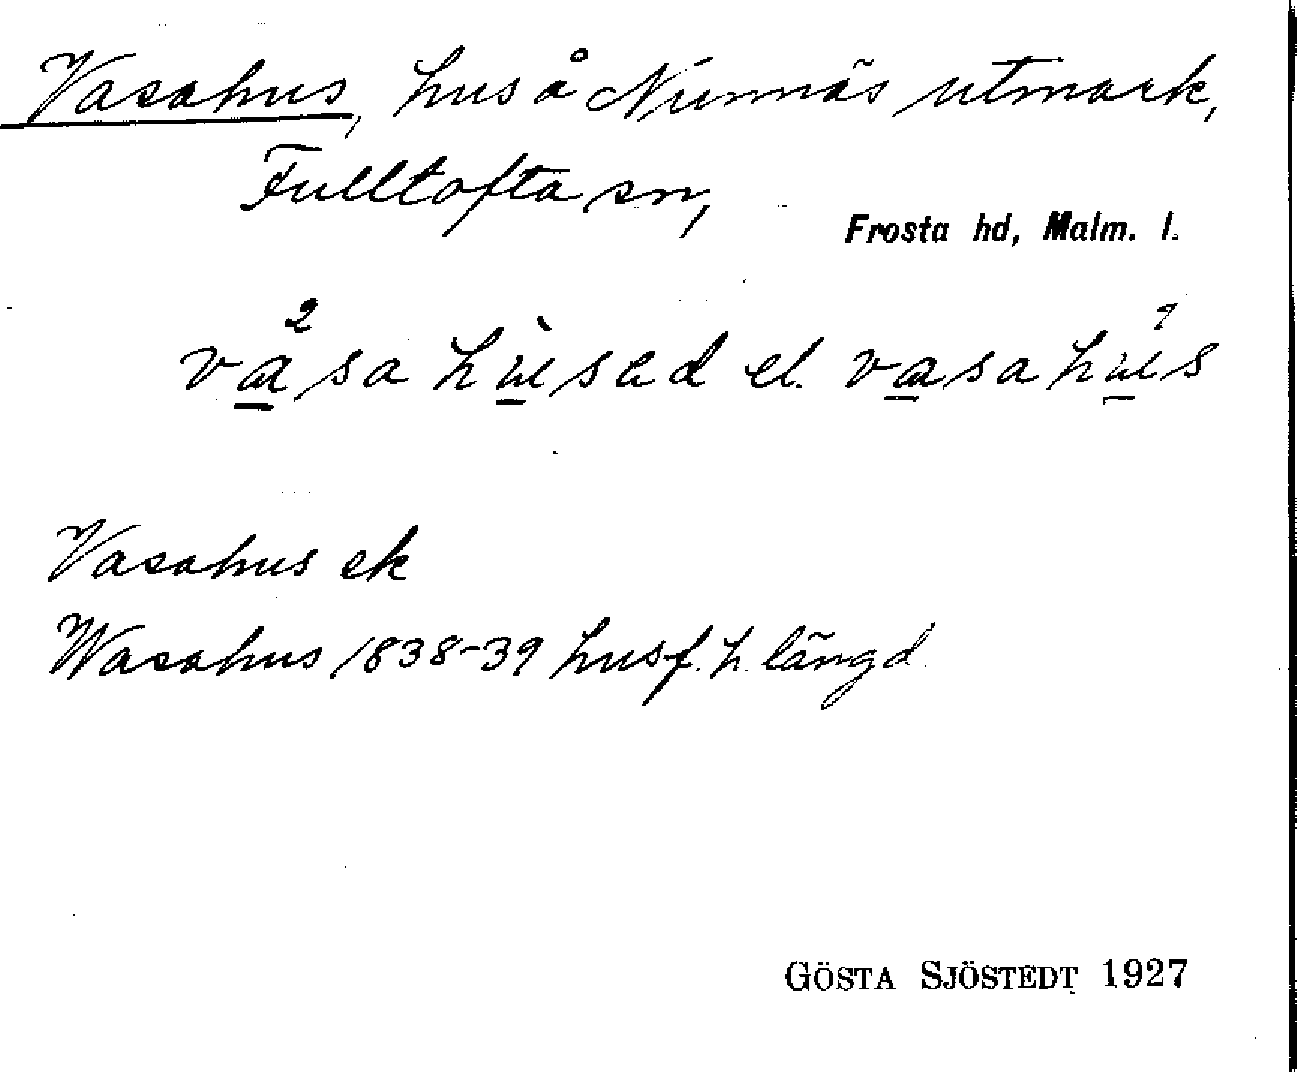 Vasahus, hus å Nunnäs utmark,
Fulltofta sn,
Frosta hd, Malm. l.
el.
Vasahus ek
Wasahus 1838-39 husf. h. längd
GÖSTA SJÖSTEDT 1927